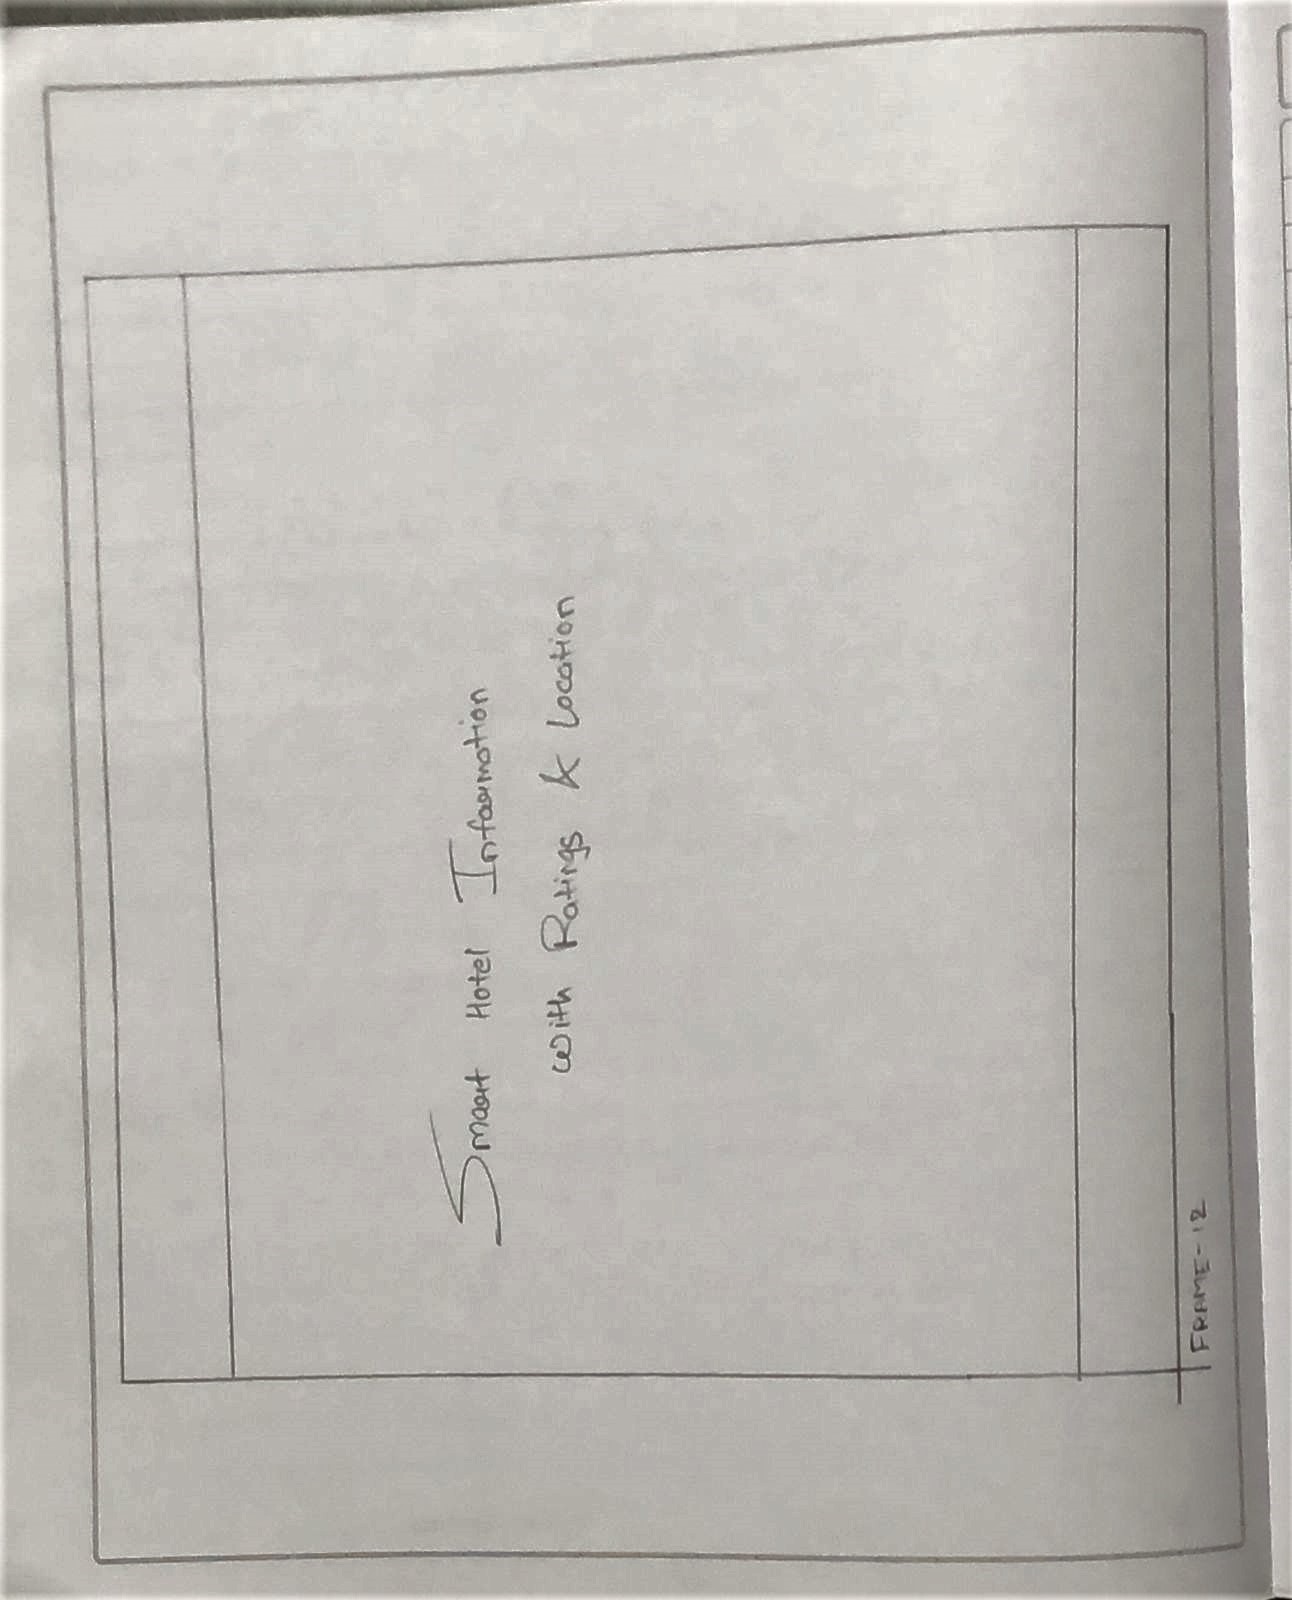 Smart Hotel Information
with Ratings & Location
FRAME-12